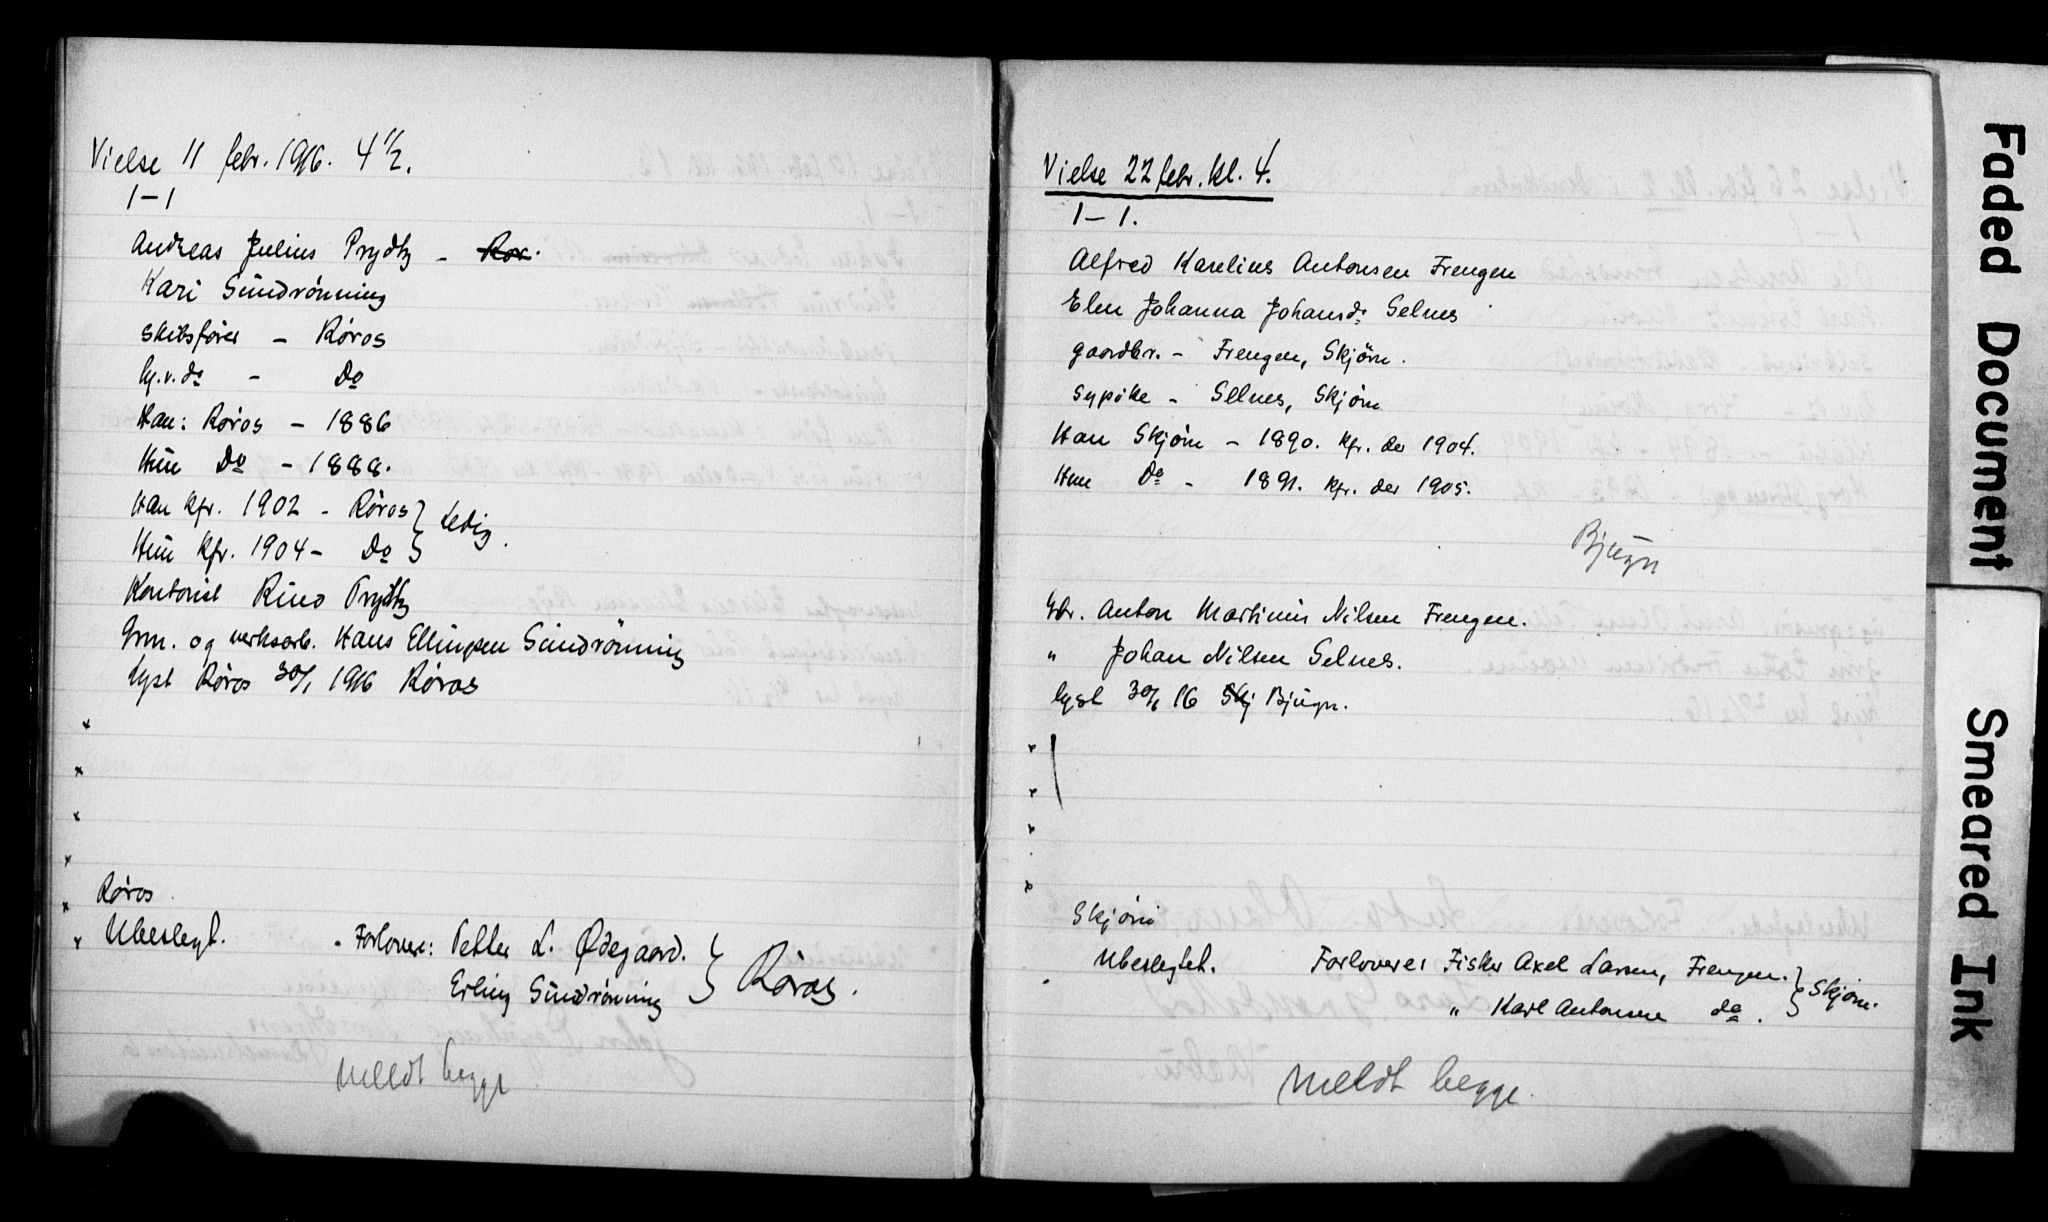 Vielse 11 febr. 1916. 4 1/2.
1-1
Andreas Julius Prydtz - Rør.
Kari Sundrønning
skibsfører - Røros
Do
Han: Røros - 1886
Hun Do - 1888.
Han kfr. 1902 - Røros } ledig.
Hun kfr. 1904 - Do }
Kontorist Rino Prydtz
Grm. og verksarb. Hans Ellingsen Sundrønning
Lyst Røros 30/1 1916 Røros
Røros
Ubeslegt. - Forlovere: Petter L. Ødegaard. } Røros.
Erling Sundrønning
Meldt begge
Vielse 22 febr. kl. 4.
1-1.
Alfred Karelius Antonsen Frengen
Elen Johanna Johansdr. Selnes
gaardbr. - Frengen, Skjørn.
sypike - Selnes, Skjørn
Han Skjørn - 1890. kfr. der 1904.
Hun Do - 1891. kfr. der 1905.
Bjugn
Gbr. Anton Martinus Nilsen Frengen.
" Johan Nilsen Selnes.
lyst 30/1 16 Skj Bjugn.
Skjørn
Ubeslegtet. Forlovere: Fisker Axel Larsen, Frengen. } Skjørn.
" Karl Antonsen do. }
Meldt begge.
Faded Document
Smeared Ink